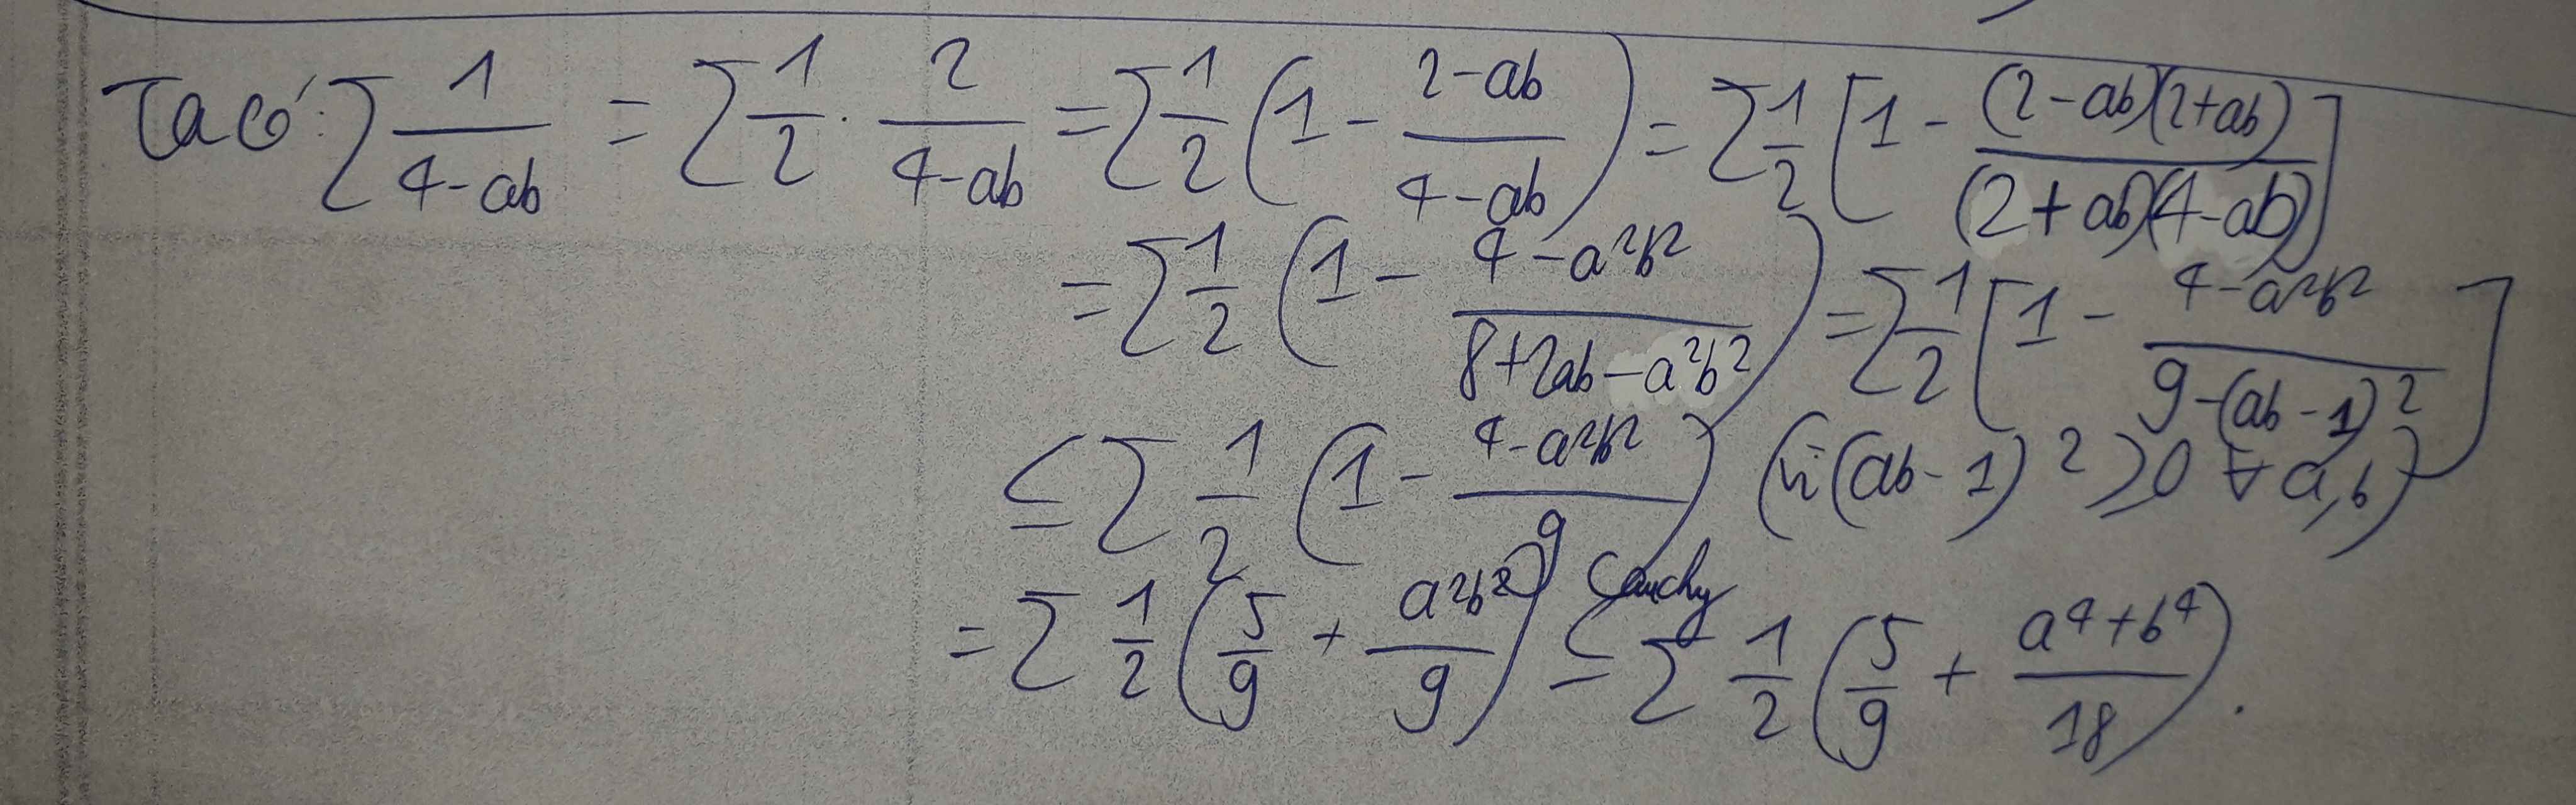 Ta có: ∑ 1/(4-ab) = ∑ 1/2 · 2/(4-ab) = ∑ 1/2 (1 - (2-ab)/(4-ab)) = ∑ 1/2 [1 - (2-ab)(2+ab)/((2+ab)(4-ab))]
= ∑ 1/2 (1 - (4-a²b²)/(8+2ab-a²b²)) = ∑ 1/2 [1 - (4-a²b²)/(9-(ab-1)²)]
≤ ∑ 1/2 (1 - (4-a²b²)/9) (vì (ab-1)² ≥ 0 ∀ a,b)
= ∑ 1/2 (5/9 + a²b²/9) Cauchy ≤ ∑ 1/2 (5/9 + (a⁴+b⁴)/18).